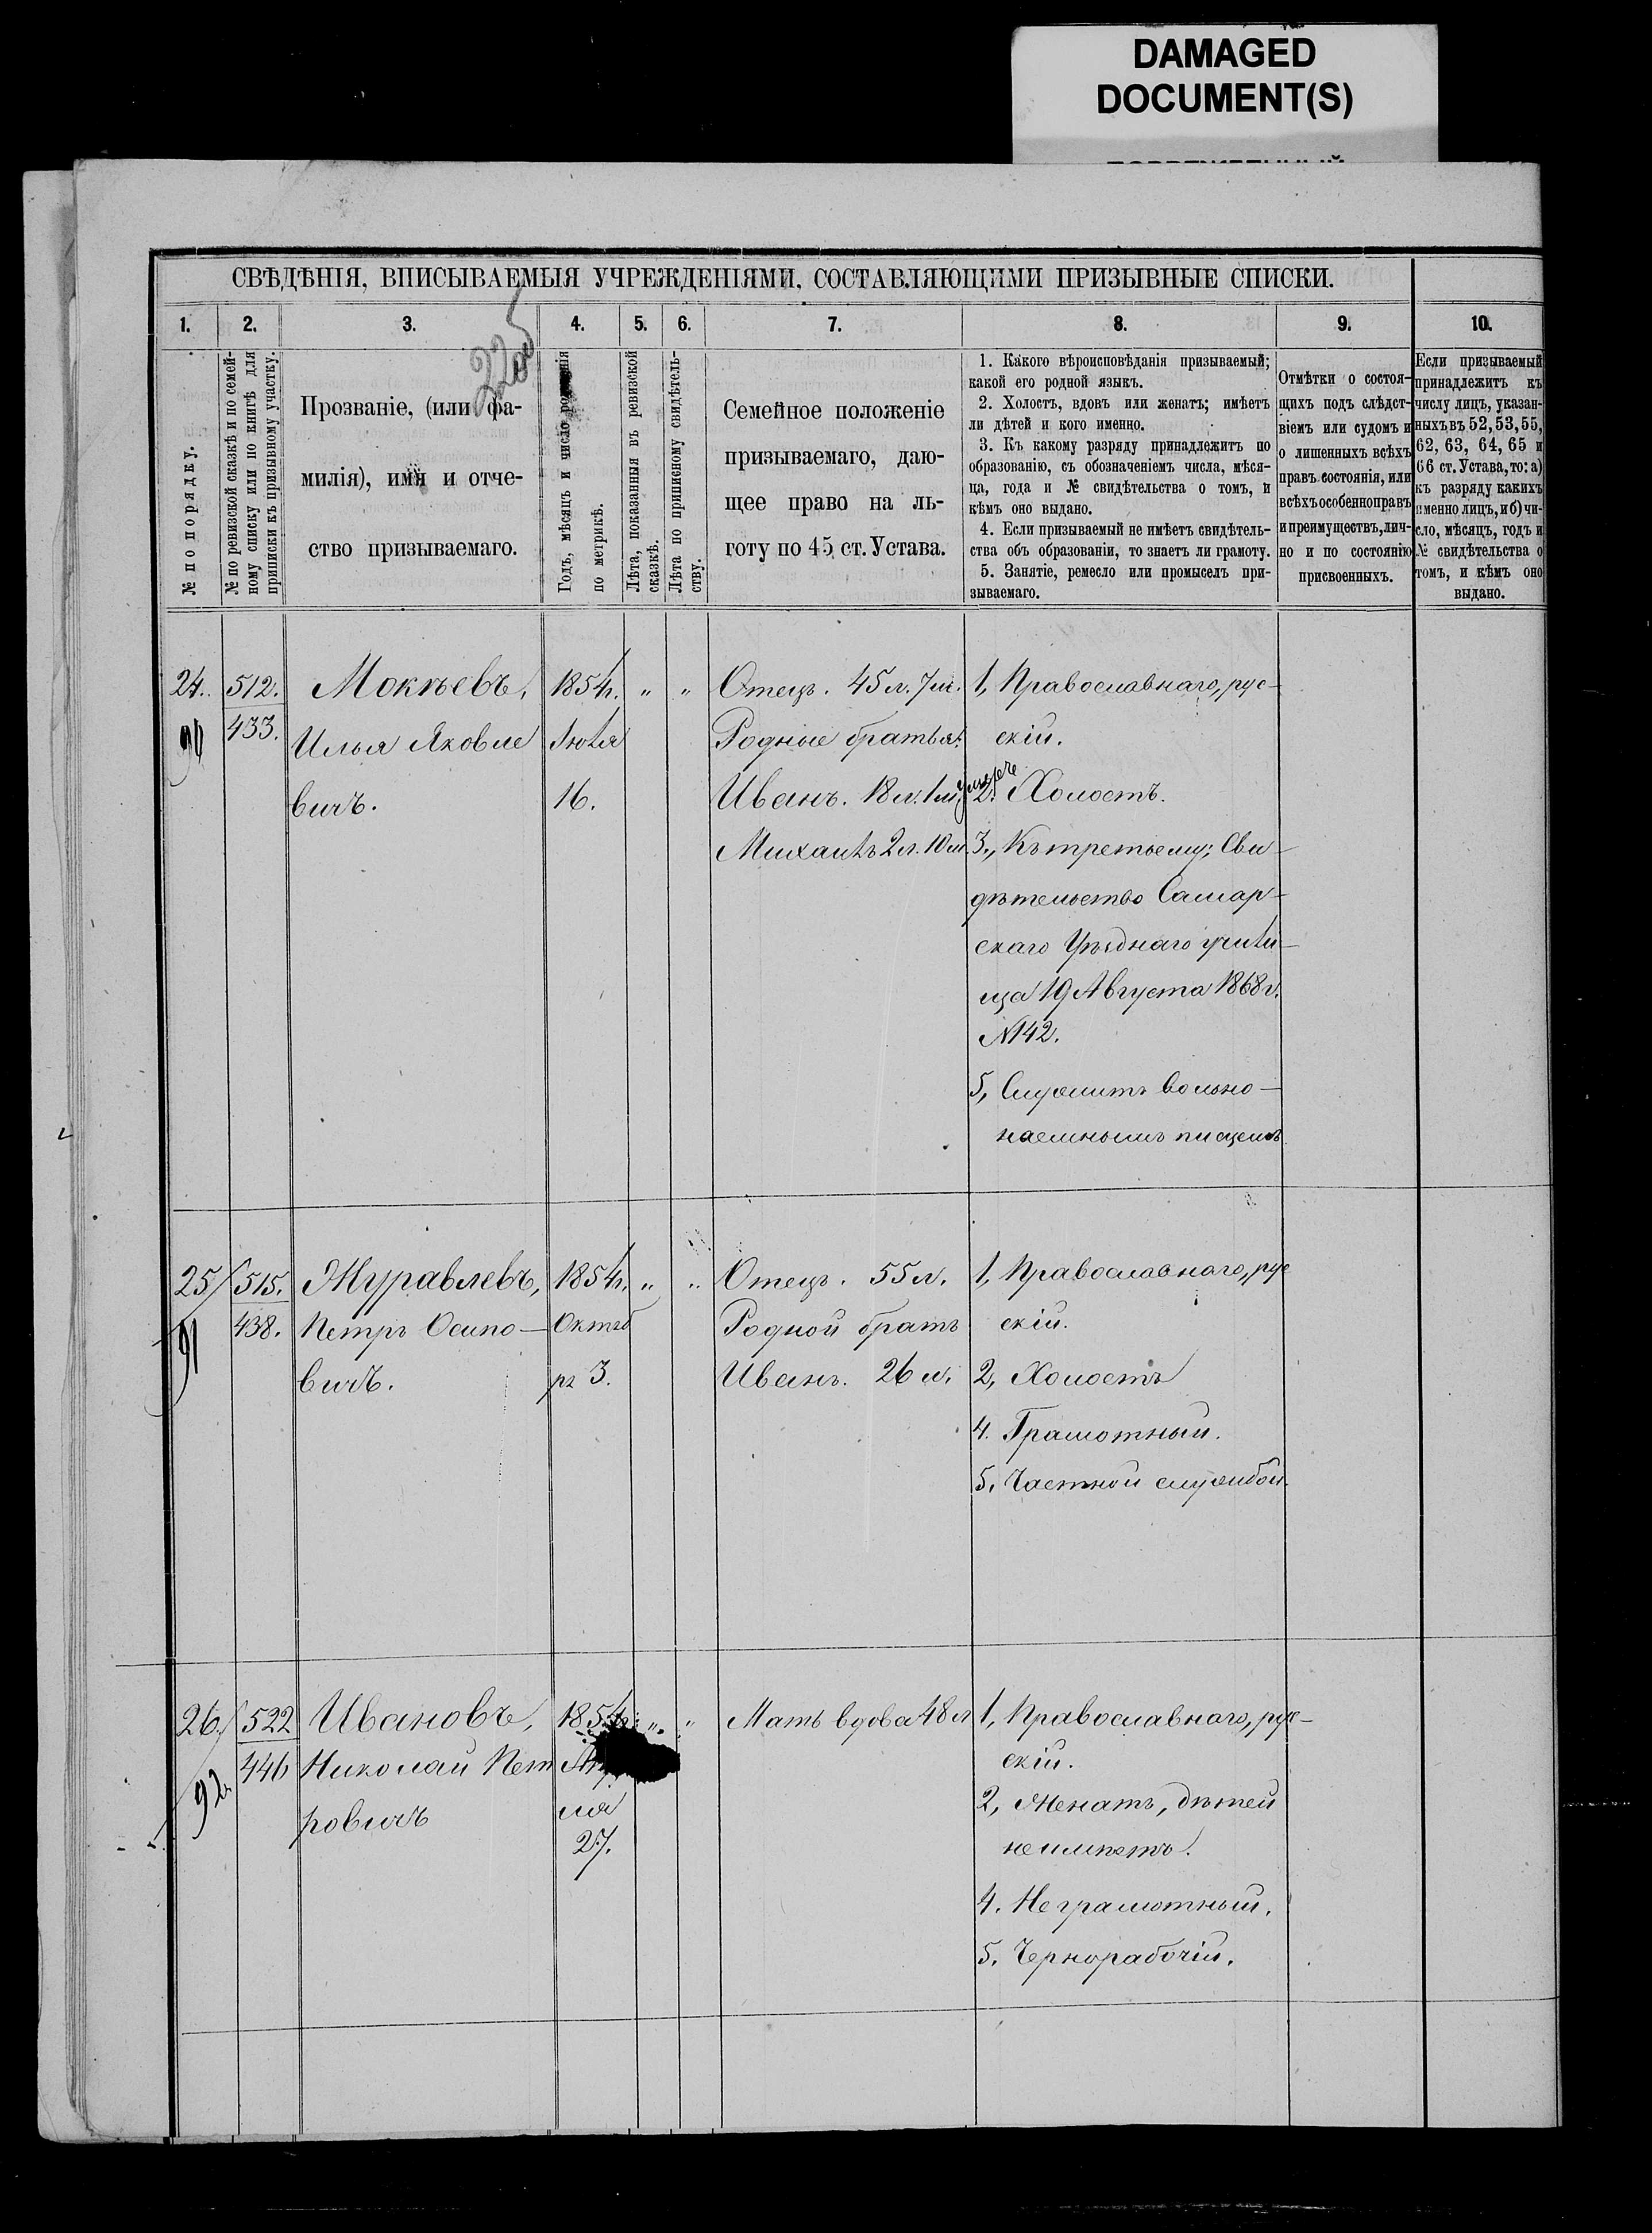 DAMAGED
DOCUMENT(S)
СВѢДѢНІЯ, ВПИСЫВАЕМЫЯ УЧРЕЖДЕНІЯМИ, СОСТАВЛЯЮЩИМИ ПРИЗЫВНЫЕ СПИСКИ.
1. 2. 3. 4. 5. 6. 7. 8. 9. 10.
№ по порядку.
№ по ревизской сказкѣ и по семей-
ному списку или по книгѣ для
приписки къ призывному участку.
Прозваніе, (или фа-
милія), имя и отче-
ство призываемаго.
Годъ, мѣсяцъ и число рожденія
по метрикѣ.
Лѣта, показанныя въ ревизской
сказкѣ.
Лѣта по приписному свидѣтель-
ству.
Семейное положеніе
призываемаго, даю-
щее право на ль-
готу по 45 ст. Устава.
1. Какого вѣроисповѣданія призываемый;
какой его родной языкъ.
2. Холостъ, вдовъ или женатъ; имѣетъ
ли дѣтей и кого именно.
3. Къ какому разряду принадлежитъ по
образованію, съ обозначеніемъ числа, мѣся-
ца, года и № свидѣтельства о томъ, и
кѣмъ оно выдано.
4. Если призываемый не имѣетъ свидѣтель-
ства объ образованіи, то знаетъ ли грамоту.
5. Занятіе, ремесло или промыселъ при-
зываемаго.
Отмѣтки о состоя-
щихъ подъ слѣдст-
віемъ или судомъ и
о лишенныхъ всѣхъ
правъ состоянія, или
всѣхъ особенно правъ
и преимуществъ, лич-
но и по состоянію
присвоенныхъ.
Если призываемый
принадлежитъ къ
числу лицъ, указан-
ныхъ въ 52, 53, 55,
62, 63, 64, 65 и
66 ст. Устава, то: а)
къ разряду какихъ
именно лицъ, и б) чи-
сло, мѣсяцъ, годъ и
№ свидѣтельства о
томъ, и кѣмъ оно
выдано.
24.
90
512.
433.
Мокѣевъ,
Илья Яковле
вичъ.
1854г.
Іюля
16.
" "
Отецъ. 45 л. 7 м.
Родные братья:
Иванъ. 18 л. 1 м.
Михаилъ 2 л. 10 м.
1, Православнаго, рус-
скій.
2. Холостъ.
3., Къ третьему; Сви-
дѣтельство Самар-
скаго Уѣзднаго учили-
ща 19 Августа 1868 г.
N 142.
5, Служитъ вольно-
наемнымъ писцемъ.
25
91
515.
438.
Журавлевъ,
Петръ Осипо-
вичъ.
1854г.
Октяб
ря 3.
" "
Отецъ. 55 л.
Родной братъ
Иванъ. 26 л.
1, Православнаго, рус
скій.
2, Холостъ
4. Грамотный.
5. Частной службой.
26.
92
522
446
Ивановъ,
Николай Пет
ровичъ
1854г.
ля
27.
" "
Мать вдова 48 л
1, Православнаго, рус-
скій.
2, Женатъ, дѣтей
не имѣетъ.
4. Неграмотный.
5. Чернорабочій.